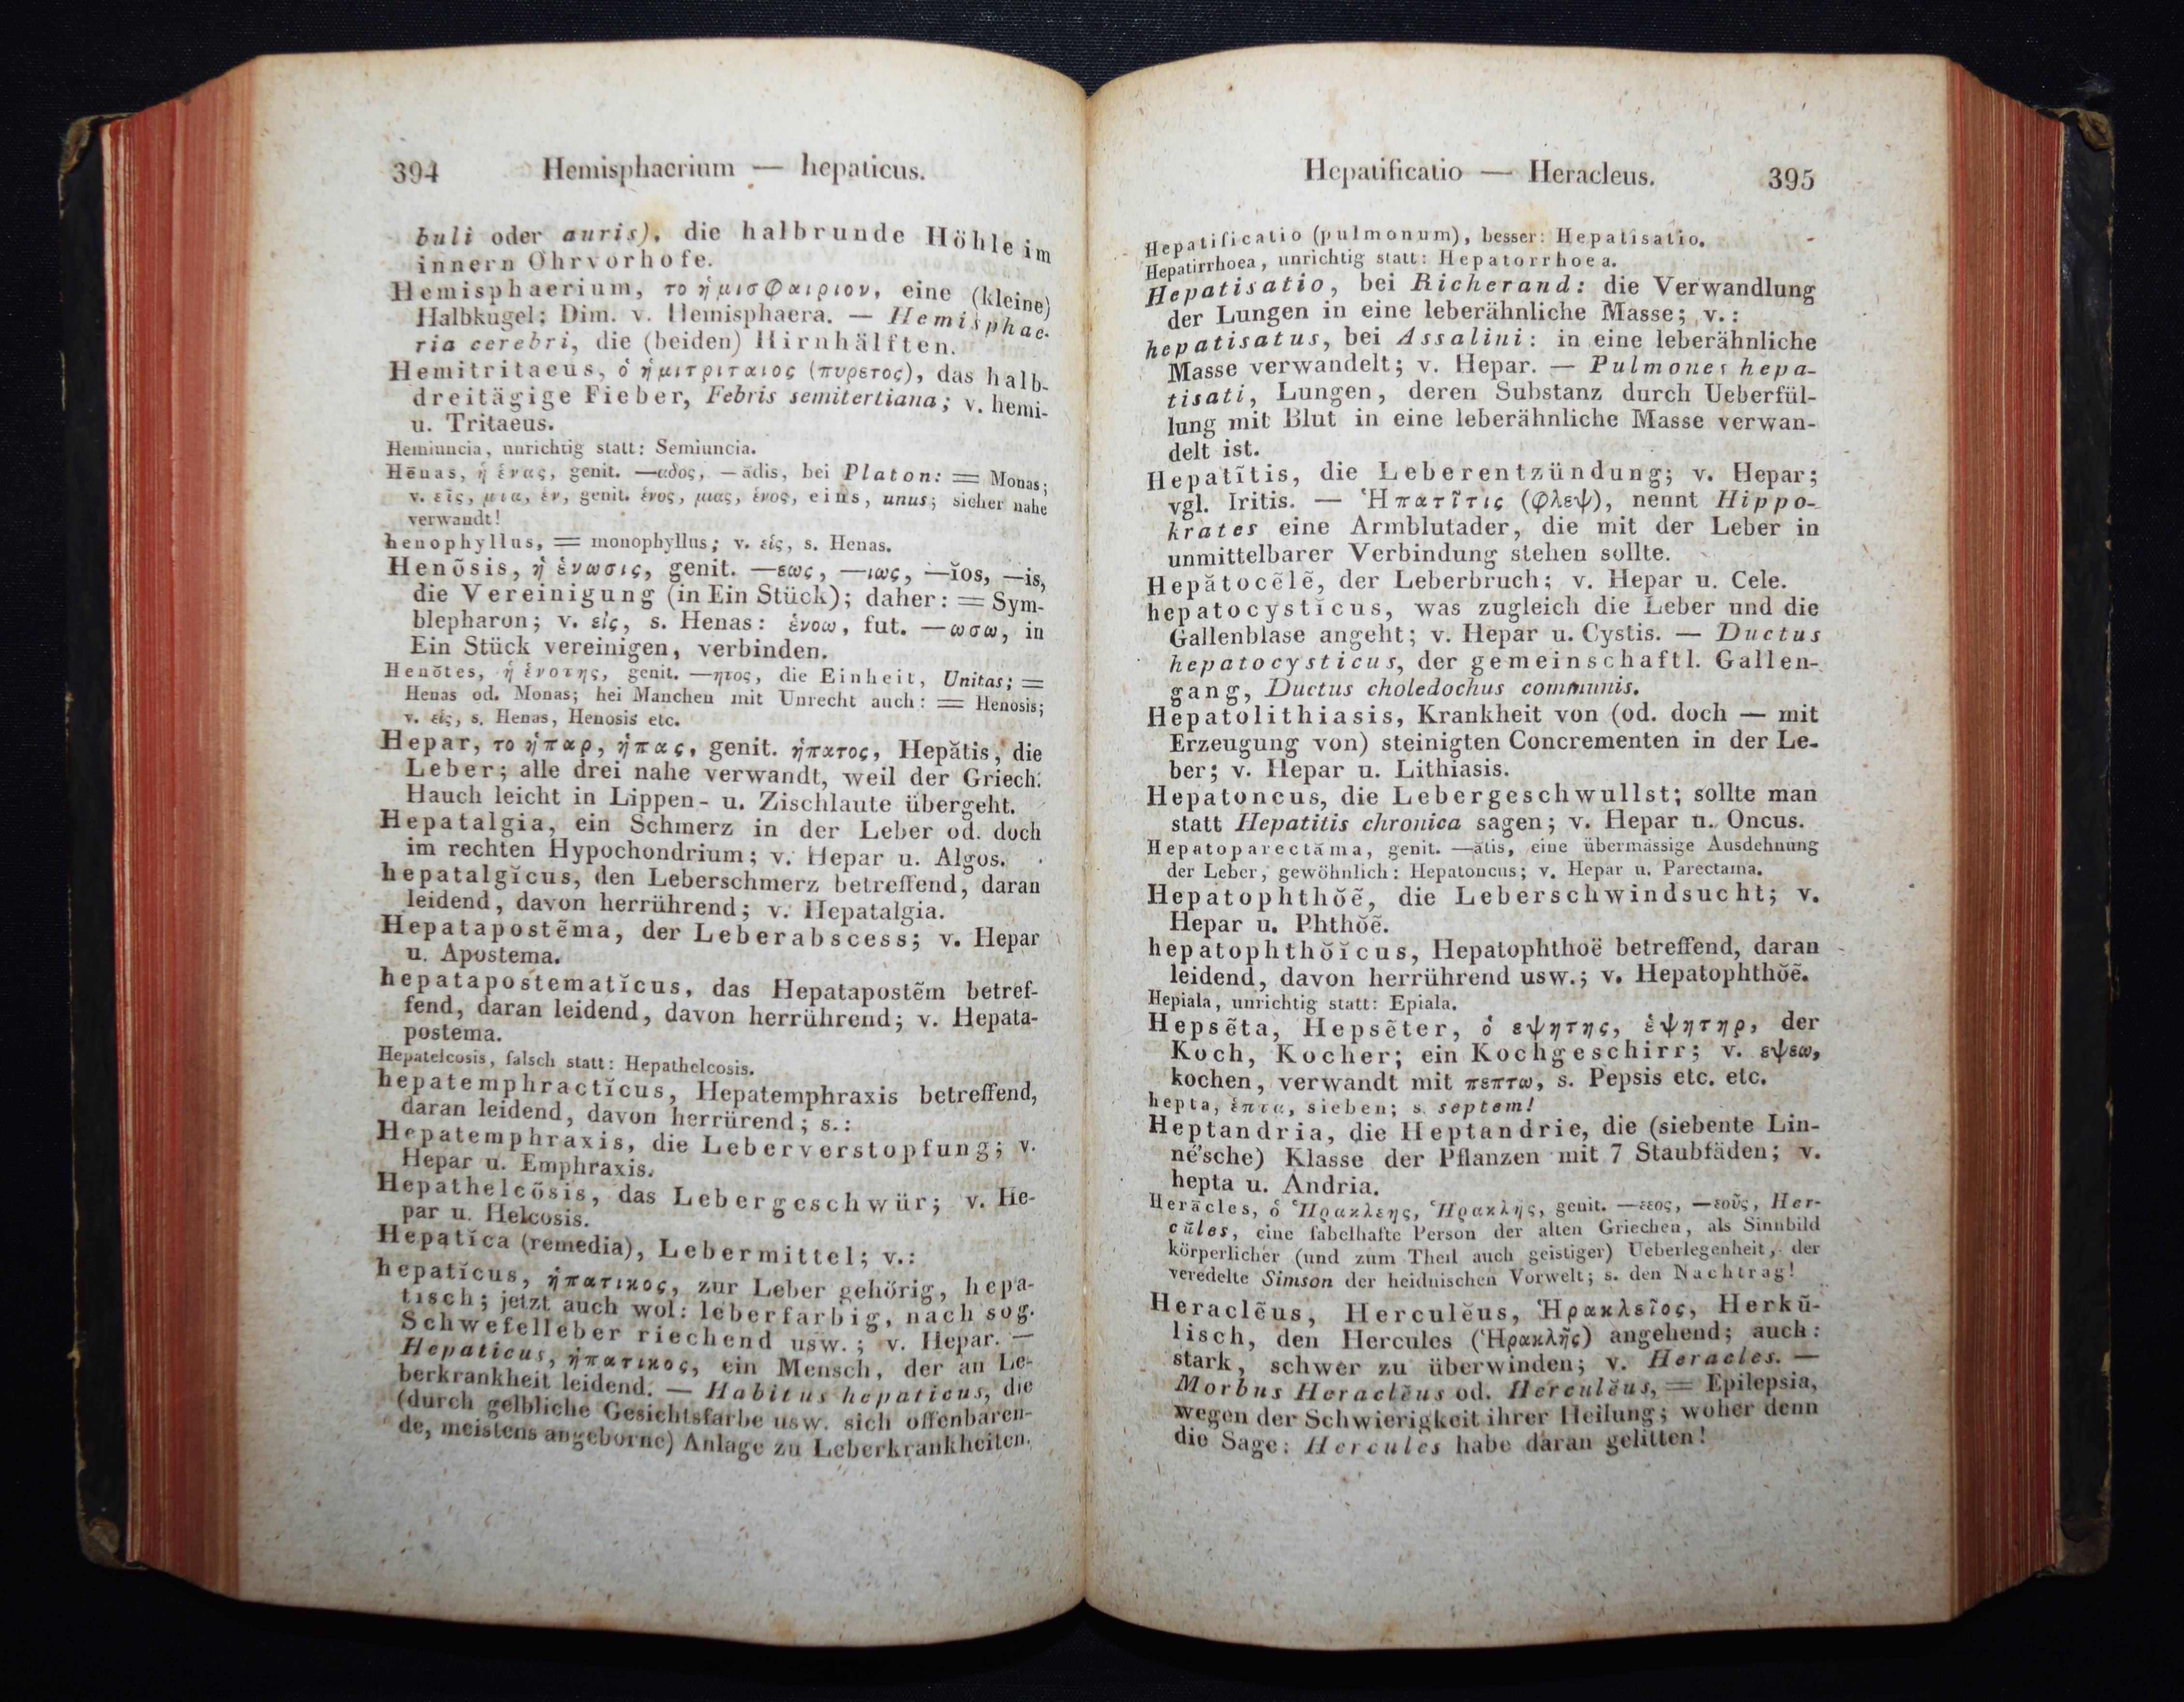 394 Hemisphaerium — hepaticus.
buli oder auris), die halbrunde Höhle im
innern Ohrvorhofe.
Hemisphaerium, το ἡμισφαιριον, eine (kleine)
Halbkugel; Dim. v. Hemisphaera. — Hemisphae-
ria cerebri, die (beiden) Hirnhälften.
Hemitritaeus, ὁ ἡμιτριταιος (πυρετος), das halb-
dreitägige Fieber, Febris semitertiana; v. hemi-
u. Tritaeus.
Hemiuncia, unrichtig statt: Semiuncia.
Hēnas, ἡ ἑνας, genit. —αδος, —ădis, bei Platon: = Monas;
v. εἱς, μια, ἑν, genit. ἑνος, μιας, ἑνος, eins, unus; sicher nahe
verwandt!
henophyllus, = monophyllus; v. εἱς, s. Henas.
Henõsis, ἡ ἑνωσις, genit. —εως, —ιως, —ĭos, —is,
die Vereinigung (in Ein Stück); daher: = Sym-
blepharon; v. εἱς, s. Henas: ἑνοω, fut. —ωσω, in
Ein Stück vereinigen, verbinden.
Henŏtes, ἡ ἑνοτης, genit. —ητος, die Einheit, Unitas; =
Henas od. Monas; hei Manchen mit Unrecht auch: = Henosis;
v. εἱς, s. Henas, Henosis etc.
Hepar, το ἡπαρ, ἡπας, genit. ἡπατος, Hepătis, die
Leber; alle drei nahe verwandt, weil der Griech.
Hauch leicht in Lippen- u. Zischlaute übergeht.
Hepatalgia, ein Schmerz in der Leber od. doch
im rechten Hypochondrium; v. Hepar u. Algos.
hepatalgĭcus, den Leberschmerz betreffend, daran
leidend, davon herrührend; v. Hepatalgia.
Hepatapostẽma, der Leberabscess; v. Hepar
u. Apostema.
hepatapostematĭcus, das Hepatapostẽm betref-
fend, daran leidend, davon herrührend; v. Hepata-
postema.
Hepatelcosis, falsch statt: Hepathelcosis.
hepatemphractĭcus, Hepatemphraxis betreffend,
daran leidend, davon herrürend; s.:
Hepatemphraxis, die Leberverstopfung; v.
Hepar u. Emphraxis.
Hepathelcõsis, das Lebergeschwür; v. He-
par u. Helcosis.
Hepatĭca (remedia), Lebermittel; v.:
hepatĭcus, ἡπατικος, zur Leber gehörig, hepa-
tisch; jetzt auch wol: leberfarbig, nach sog.
Schwefelleber riechend usw.; v. Hepar. —
Hepaticus, ἡπατικος, ein Mensch, der an Le-
berkrankheit leidend. — Habitus hepaticus, die
(durch gelbliche Gesichtsfarbe usw. sich offenbaren-
de, meistens angeborne) Anlage zu Leberkrankheiten.
Hepatificatio — Heracleus. 395
Hepatificatio (pulmonum), besser: Hepatisatio.
Hepatirrhoea, unrichtig statt: Hepatorrhoea.
Hepatisatio, bei Richerand: die Verwandlung
der Lungen in eine leberähnliche Masse; v.:
hepatisatus, bei Assalini: in eine leberähnliche
Masse verwandelt; v. Hepar. — Pulmones hepa-
tisati, Lungen, deren Substanz durch Ueberfül-
lung mit Blut in eine leberähnliche Masse verwan-
delt ist.
Hepatĩtis, die Leberentzündung; v. Hepar;
vgl. Iritis. — Ἡπατῖτις (φλεψ), nennt Hippo-
krates eine Armblutader, die mit der Leber in
unmittelbarer Verbindung stehen sollte.
Hepătocẽlẽ, der Leberbruch; v. Hepar u. Cele.
hepatocystĭcus, was zugleich die Leber und die
Gallenblase angeht; v. Hepar u. Cystis. — Ductus
hepatocysticus, der gemeinschaftl. Gallen-
gang, Ductus choledochus communis.
Hepatolithiasis, Krankheit von (od. doch — mit
Erzeugung von) steinigten Concrementen in der Le-
ber; v. Hepar u. Lithiasis.
Hepatoncus, die Lebergeschwullst; sollte man
statt Hepatitis chronica sagen; v. Hepar u. Oncus.
Hepatoparectăma, genit. —ătis, eine übermässige Ausdehnung
der Leber, gewöhnlich: Hepatoncus; v. Hepar u. Parectama.
Hepatophthŏẽ, die Leberschwindsucht; v.
Hepar u. Phthŏẽ.
hepatophthŏĭcus, Hepatophthoë betreffend, daran
leidend, davon herrührend usw.; v. Hepatophthŏẽ.
Hepiala, unrichtig statt: Epiala.
Hepsẽta, Hepsẽter, ὁ εψητης, ἑψητηρ, der
Koch, Kocher; ein Kochgeschirr; v. εψεω,
kochen, verwandt mit πεπτω, s. Pepsis etc. etc.
hepta, ἑπτα, sieben; s. septem!
Heptandria, die Heptandrie, die (siebente Lin-
né'sche) Klasse der Pflanzen mit 7 Staubfäden; v.
hepta u. Andria.
Herăcles, ὁ Ἡρακλεης, Ἡρακλῆς, genit. —εεος, —εοῦς, Her-
cŭles, eine fabelhafte Person der alten Griechen, als Sinnbild
körperlicher (und zum Theil auch geistiger) Ueberlegenheit, der
veredelte Simson der heidnischen Vorwelt; s. den Nachtrag!
Heraclẽus, Herculĕus, Ἡρακλεῖος, Herkũ-
lisch, den Hercules (Ἡρακλῆς) angehend; auch:
stark, schwer zu überwinden; v. Heracles. —
Morbus Heraclẽus od. Herculĕus, = Epilepsia,
wegen der Schwierigkeit ihrer Heilung; woher denn
die Sage: Hercules habe daran gelitten!